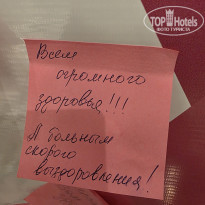 TOP Hotels
ФОТО ТУРИСТА
Всем
огромного
здоровья!!!
А больным
скорого
выздоровления!